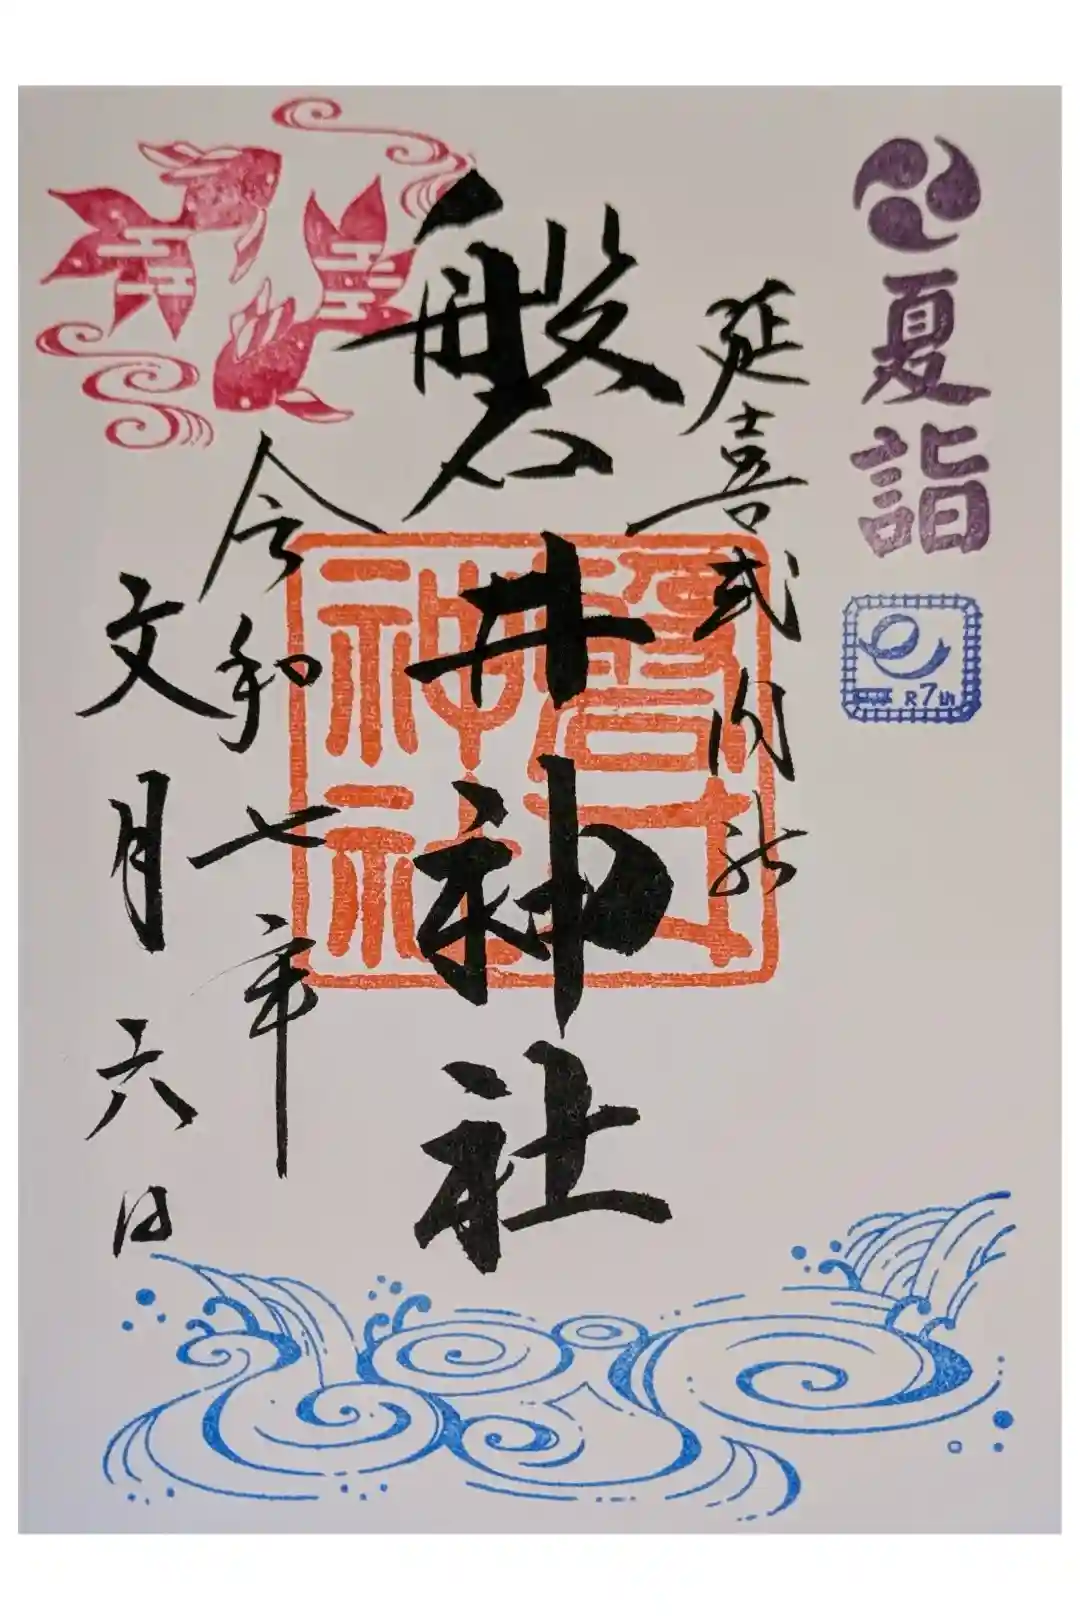 夏詣
R7th
延喜式内社
磐井神社
磐井神社
令和七年
文月六日